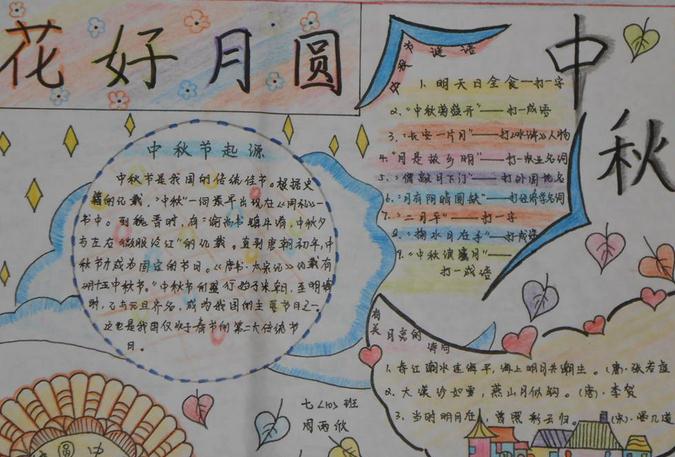 花好月圆
中秋
中秋节起源
中秋节是我国的传统佳节。根据史
籍的记载,“中秋”一词最早出现在《周礼》一
书中。到魏晋时,有“谕尚书镇牛渚,中秋夕
与左右微服泛江”的记载。直到唐朝初年,中
秋节才成为固定的节日。《唐书·太宗记》记载有
“中秋节的盛行始于宋朝,至明清
时,已与元旦齐名,成为我国的主要节日之一。
这也是我国仅次于春节的第二大传统节
日。
谜语
1、明天日全食—打一字
2、“中秋菊盛开”——打一成语
3、“长安一片月”——打《水浒》人物
4、“月是故乡明”——打一
名词
5、“僧敲月下门”——打外国地名
6、“月有阴晴圆缺”——打经济学名词
7、“二月平”——打一字
8、“掬水月在手”——打成语
9、“中秋 月”——
打一成语
有关月亮的诗词
1、春江潮水连海平,海上明月共潮生。(唐·张若虚
2、大漠沙如雪,燕山月似钩。(唐)·李贺
3、当时明月在,曾照彩云归。(宋)·晏几道
七 103 班
周雨欣